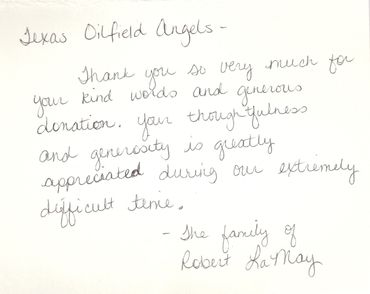 Texas Oilfield Angels -
Thank you so very much for
your kind words and generous
donation. Your thoughtfulness
and generosity is greatly
appreciated during our extremely
difficult time.
- The family of
Robert LaMay